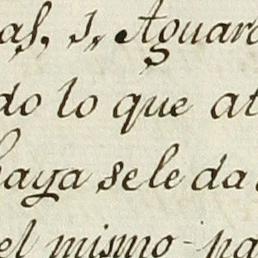 as, 1,, Aguard
do lo que at
haya se le da
el mismo pa